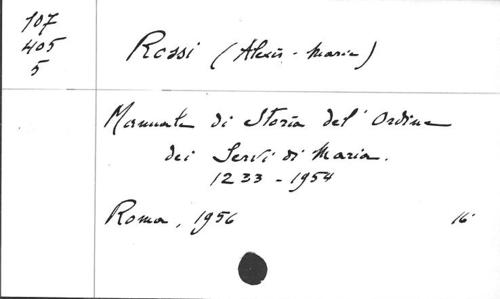 107
405
5
Rossi (Alexis-Marie)
Manuale di Storia del' Ordine
dei Servi di Maria.
1233-1954
Roma, 1956 16°